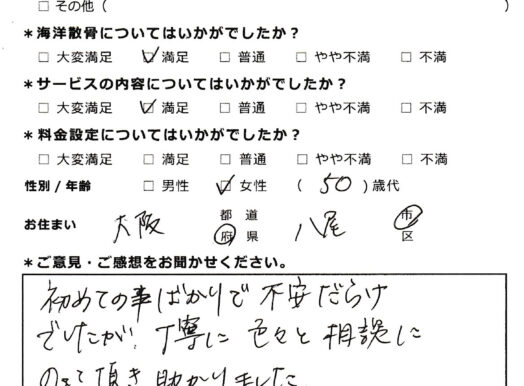 □ その他（　　　）
＊海洋散骨についてはいかがでしたか？
□ 大変満足 ☑ 満足 □ 普通 □ やや不満 □ 不満
＊サービスの内容についてはいかがでしたか？
□ 大変満足 ☑ 満足 □ 普通 □ やや不満 □ 不満
＊料金設定についてはいかがでしたか？
□ 大変満足 □ 満足 □ 普通 □ やや不満 □ 不満
性別 / 年齢 □ 男性 ☑ 女性 （ 50 ）歳代
お住まい 大阪 都 道 府 県 八尾 市 区
＊ご意見・ご感想をお聞かせください。
初めての事ばかりで 不安だらけ
でしたが、丁寧に 色々と 相談に
のって頂き 助かりました